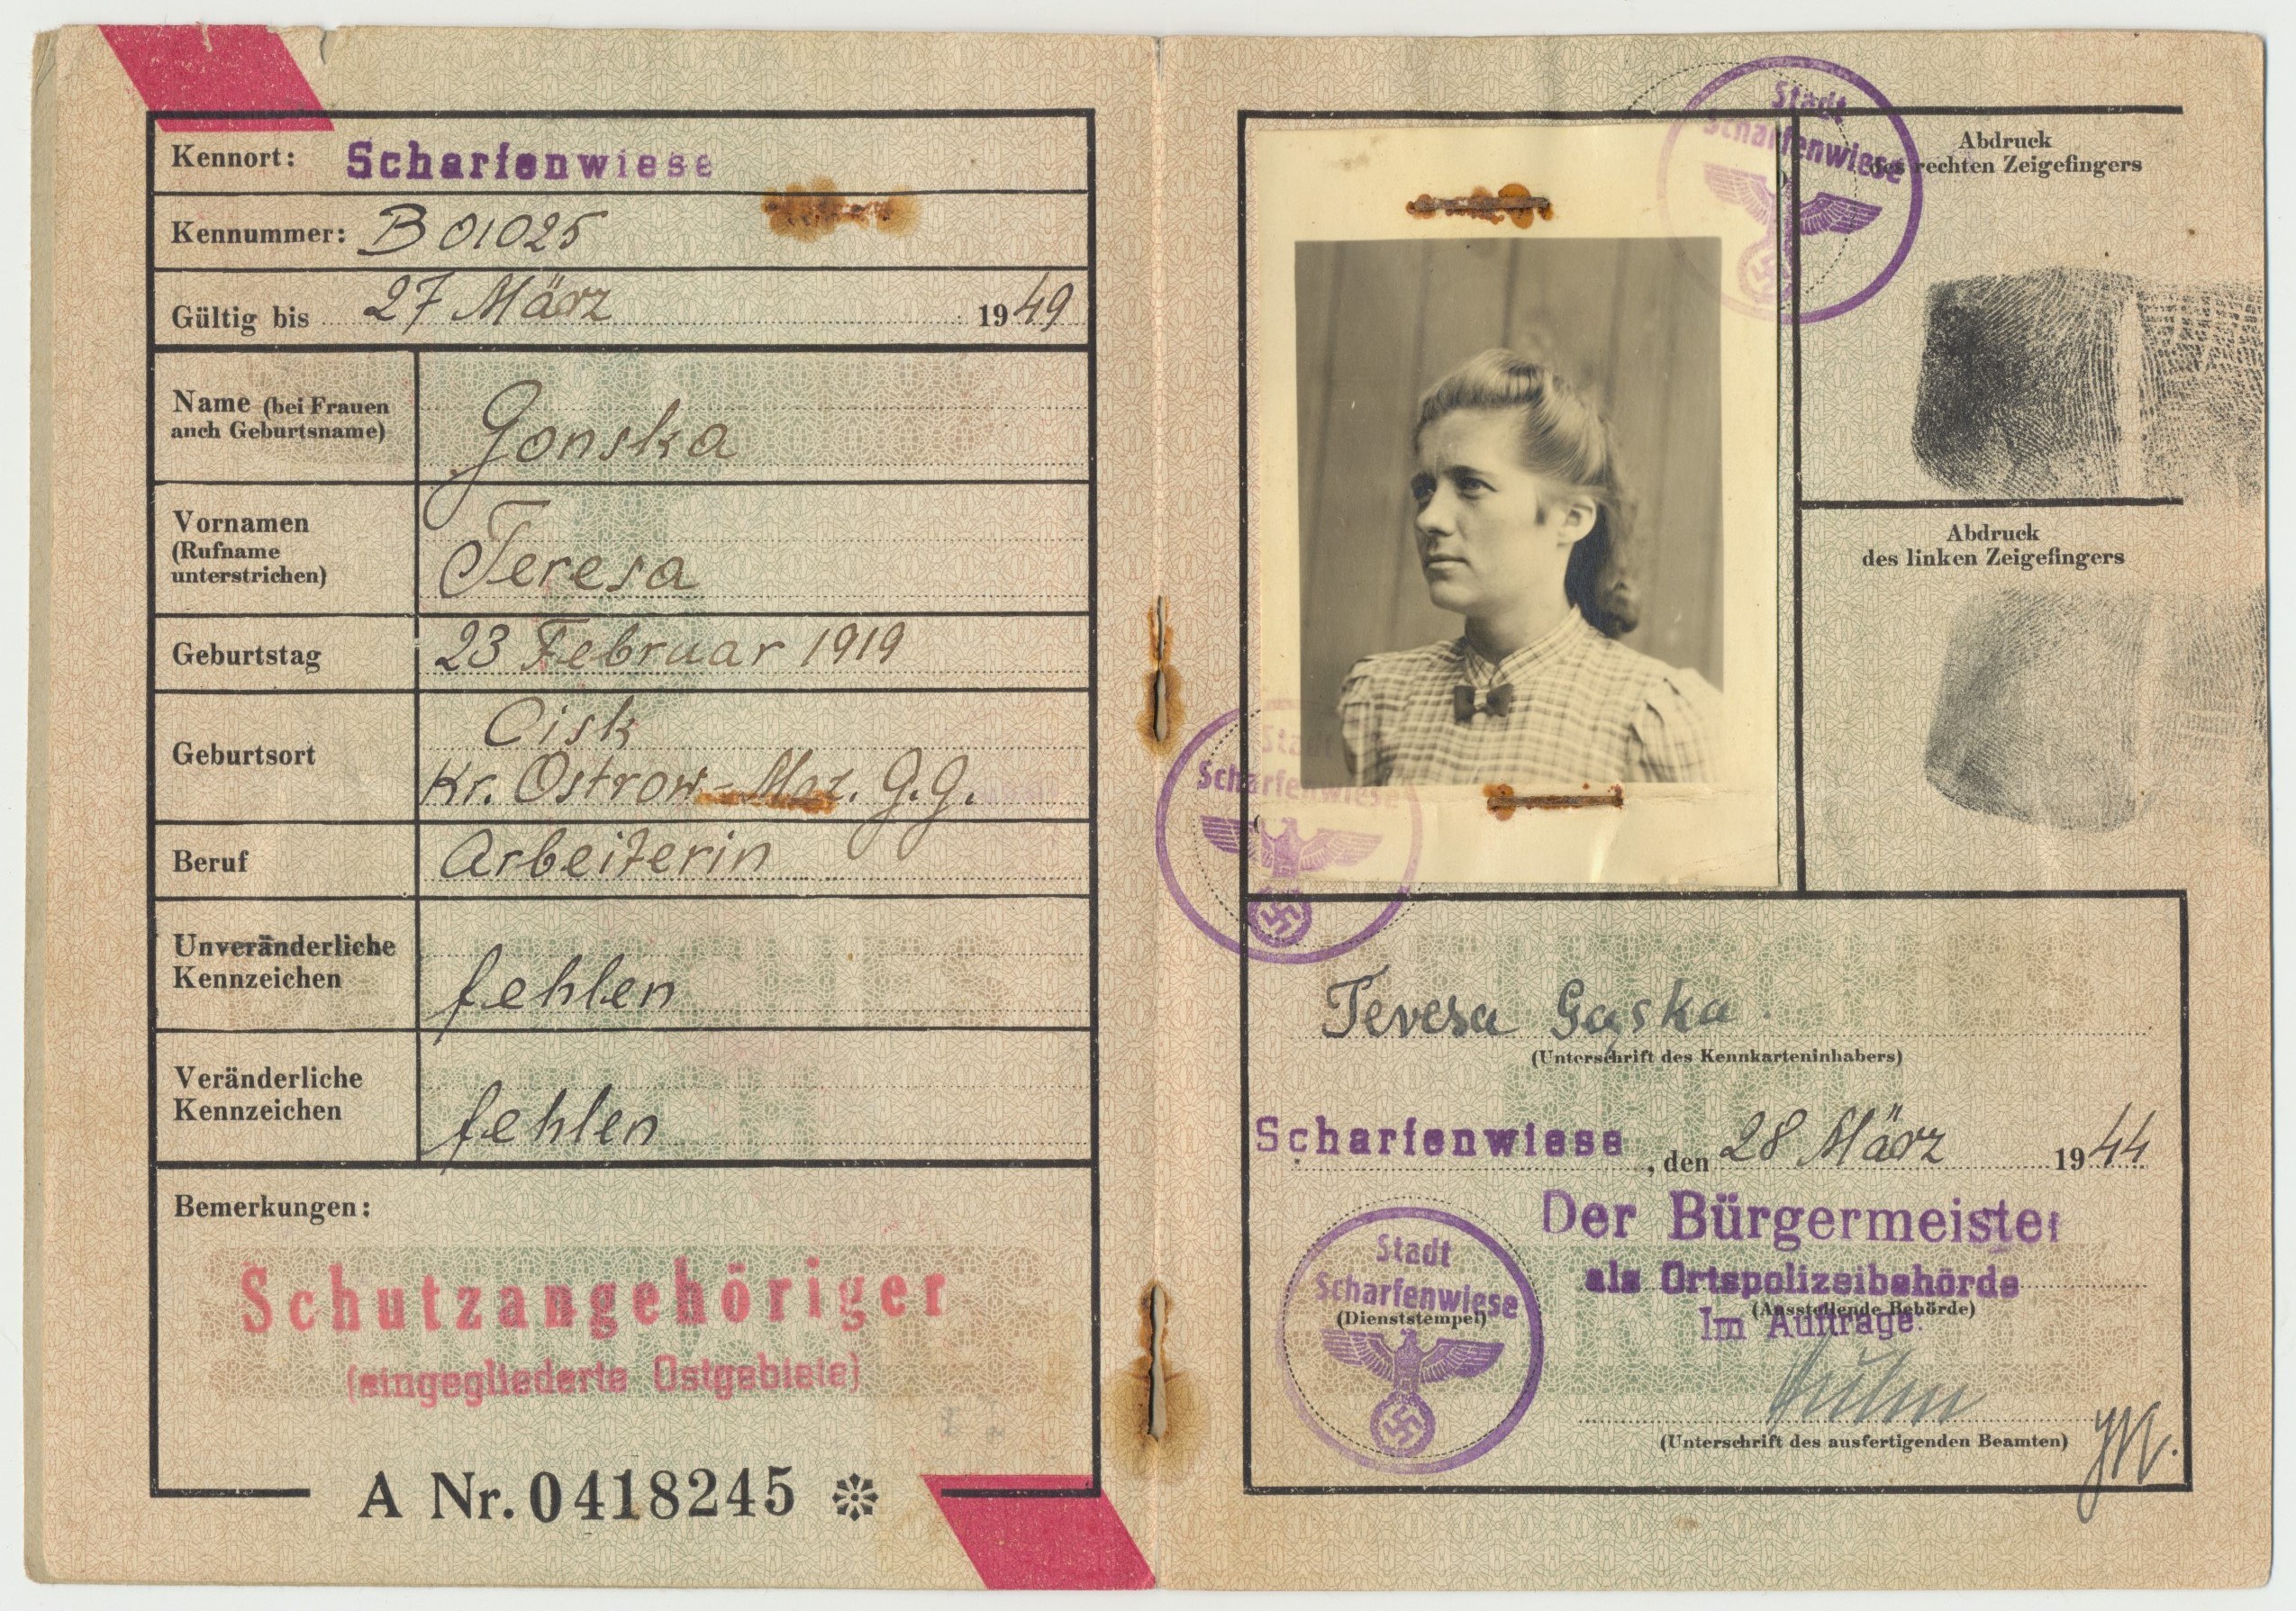 Kennort: Scharfenwiese
Kennummer: B 01025
Gültig bis 27 März 1949
Name (bei Frauen
auch Geburtsname)
Gonska
Vornamen
(Rufname
unterstrichen)
Teresa
Geburtstag 23 Februar 1919
Geburtsort
Cisk
Kr. Ostrow-Maz. G.G.
Beruf Arbeiterin
Unveränderliche
Kennzeichen
fehlen
Veränderliche
Kennzeichen
fehlen
Bemerkungen:
Schutzangehöriger
(eingegliederte Ostgebiete)
A Nr. 0418245
Stadt
Scharfenwiese
Abdruck
des rechten Zeigefingers
Abdruck
des linken Zeigefingers
Stadt
Scharfenwiese
Teresa Gąska
(Unterschrift des Kennkarteninhabers)
Scharfenwiese, den 28 März 1944
Der Bürgermeister
als Ortspolizeibehörde
(Ausstellende Behörde)
Im Auftrage:
Stadt
Scharfenwiese
(Dienststempel)
(Unterschrift des ausfertigenden Beamten)